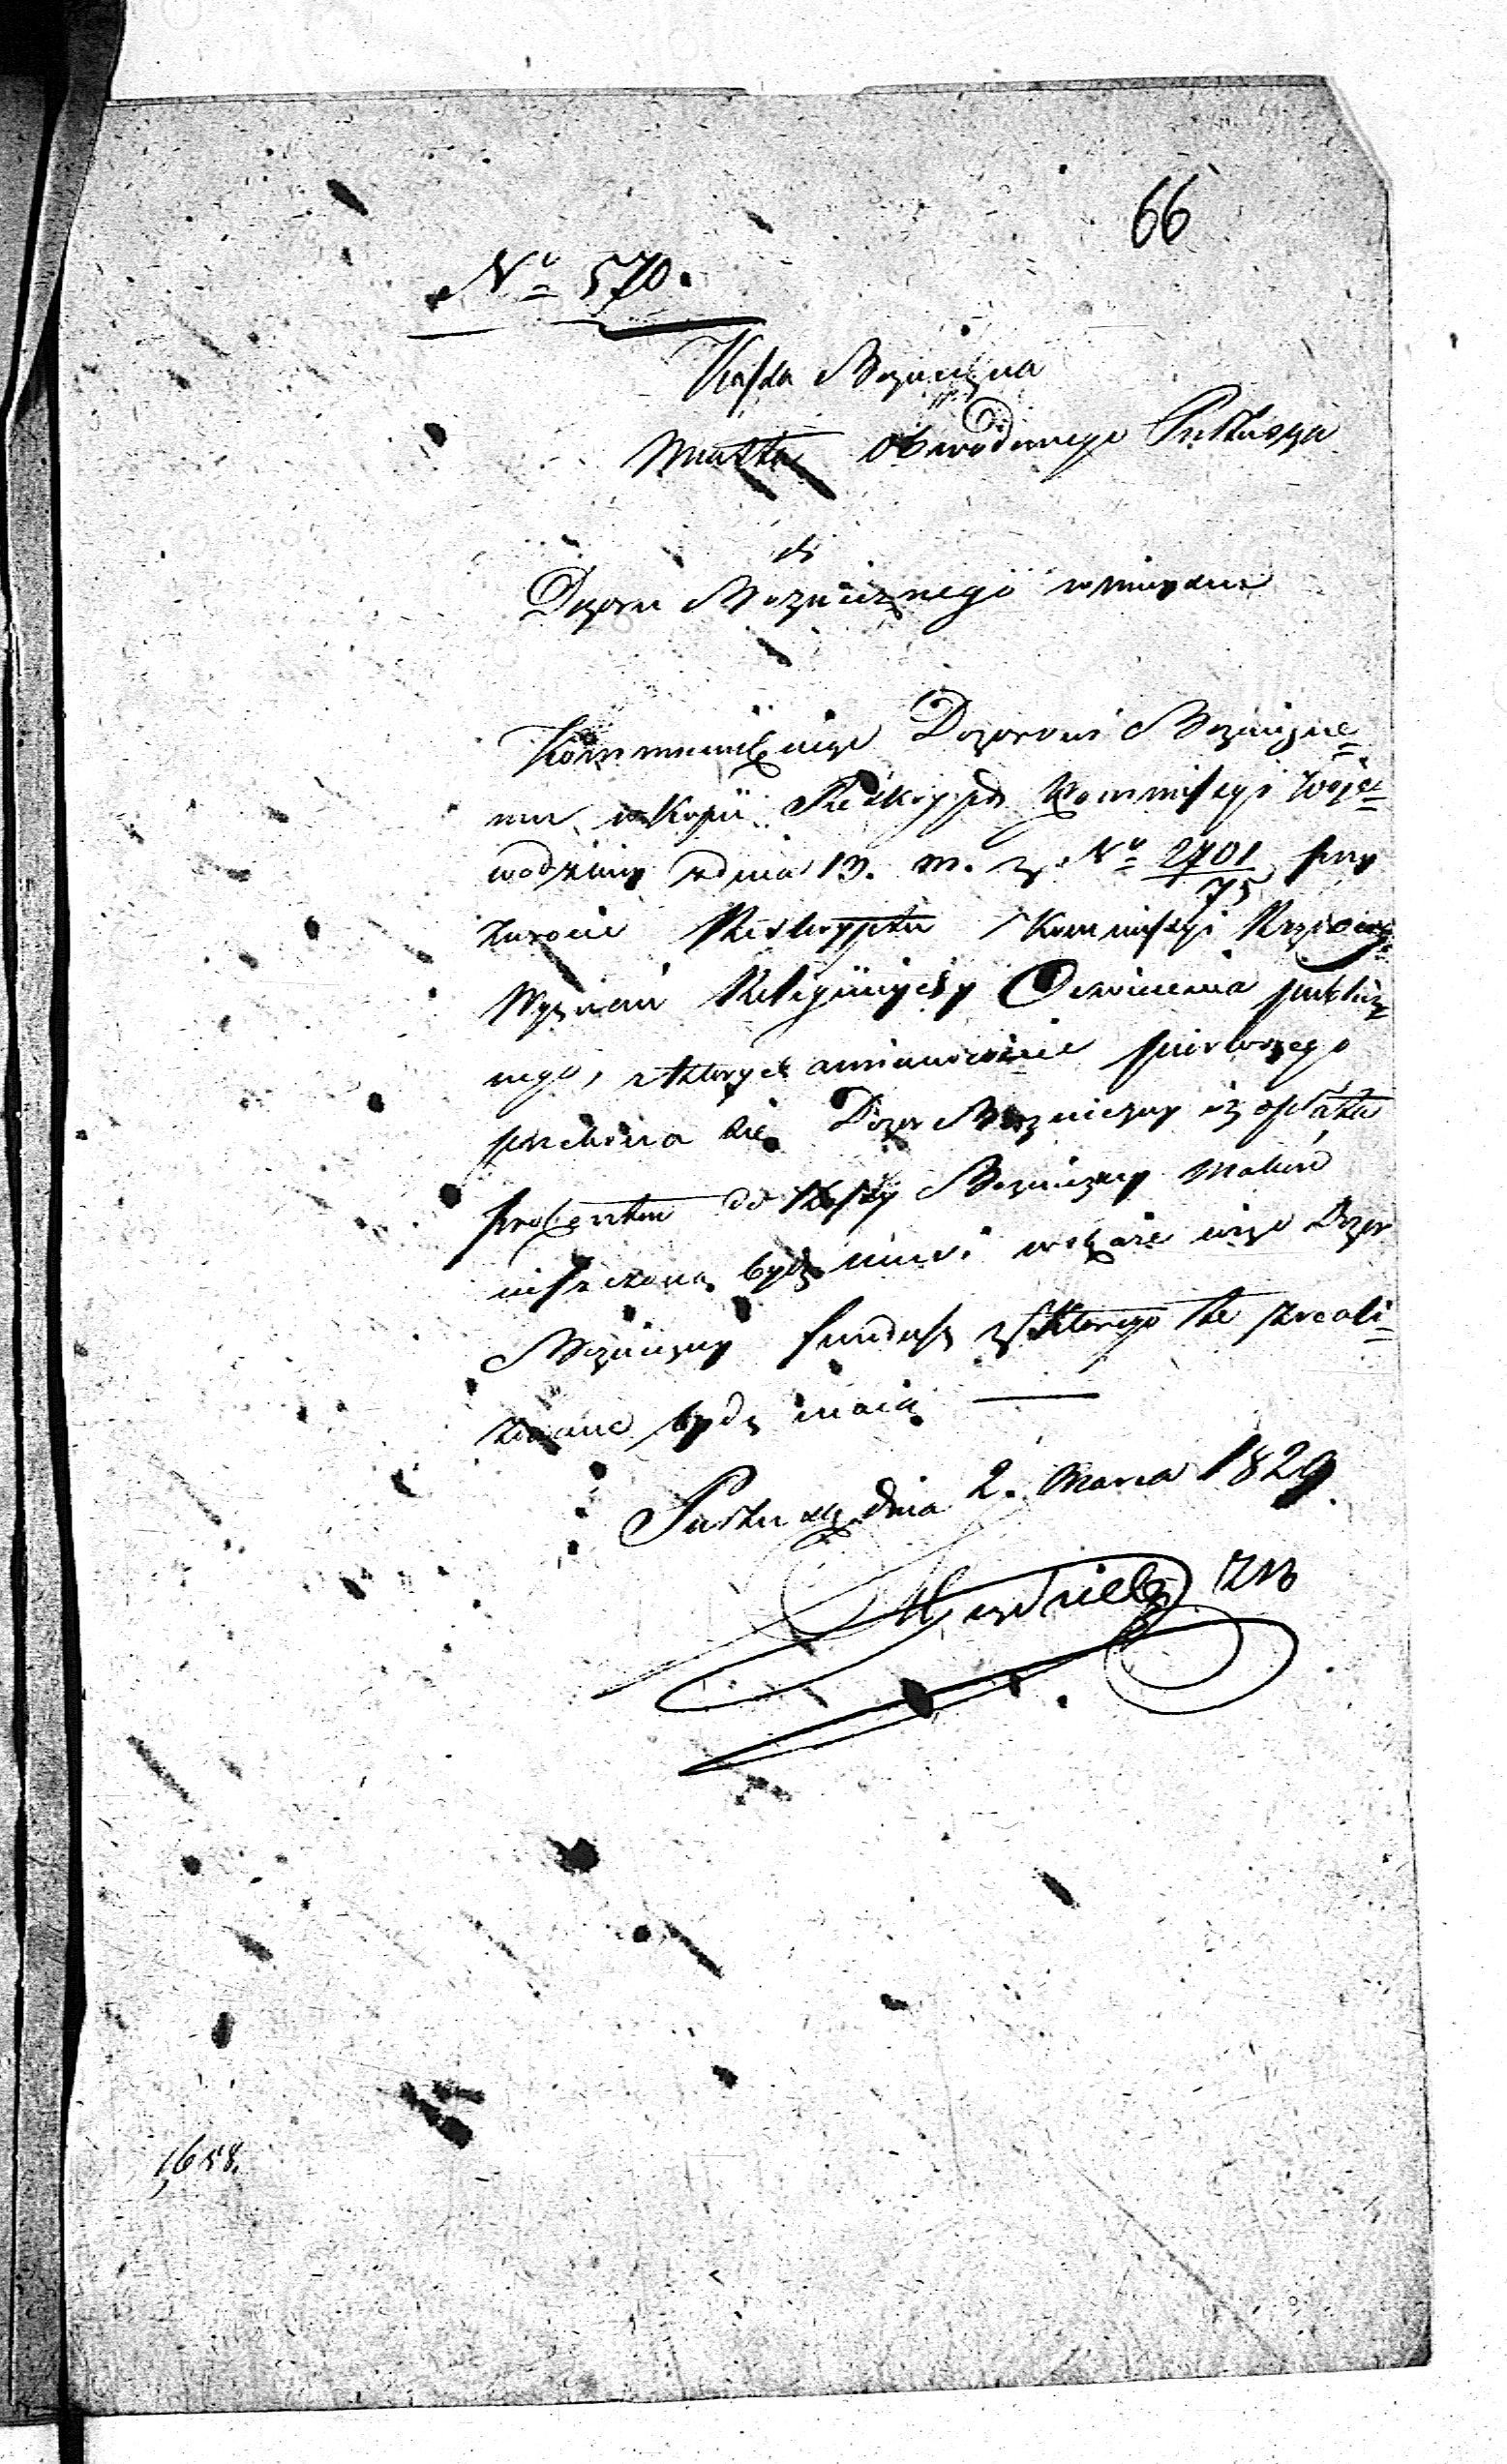 66
No 570.
Kassa Bożnicza
Miasta Obwodowego Pułtuska
do
Dozoru Bożniczego w miejscu
Kommunikuie Dozorowi Bożnicze=
mu w Kopii Reskrypt Kommissyi Woje=
wodzkiey z dnia 13. m. z. No 2701/75 przy
zwrocie Reskryptu Kommissyi Rządowey
Wyznań Religijnych y Oswiecenia publicz
nego, z ktorych pierwszego
przekona się Dozor Bożniczy iż opłata
procentu do Kassy Bożniczey Maków
uiszczona bydz winna wskaże więc Dozor
Bożniczy fundusz z ktorego te zreali=
zowane bydz maią
Pułtusk dnia 2. Marca 1829